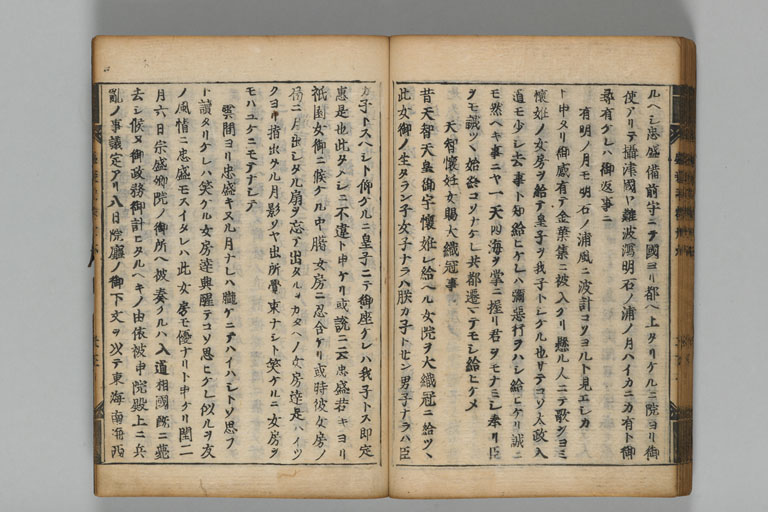 ルヘシ忠盛備前守ニテ國ヨリ都ヘ上タリケルニ院ヨリ御
使アリテ播津國ヤ難波潟明石ノ浦ノ月ハイカニカ有ト御
尋有ケレハ御返事ニ
有明ノ月モ明石ノ浦風ニ波計コソヨルト見エシカ
ト申タリ御感有テ金葉集ニ被入ケリ懸ル人ニテ歌ヲヨミ
懐妊ノ女房ヲ給テ皇子ヲ我子トシケル也サテコソ太政入
道モ少シ去事ト知給ヒケレハ彌惡行ヲハシ給ヒケリ誠ニ
モ然ヘキ事ニヤ一天四海ヲ掌ニ握リ君ヲモナミシ奉リ臣
ヲモ誡シ始終コソナケレ共都遷マテモシ給ヒケメ
天智懷妊女賜大織冠事
昔天智天皇御宇懷妊シ給ヘル女院ヲ大織冠ニ給ツヽ
此女御ノ生タラン子女子ナラハ朕カ子トセン男子ナラハ臣
カ子トスヘシト仰ケルニ皇子ニテ御座ケレハ我子トス即定
惠是也此タメシニ不違ト申ケリ或說ニ云忠盛若キヨリ
祇園女御ニ候ケル中﨟女房ニ忍合ケリ或時彼女房ノ
局ニ月出シタル扇ヲ忘テ出タルヲカタヘノ女房達是ハイツ
クヨリ指出タル月影ソヤ出所覺束ナシト笑ケルニ女房ヲ
モハユケニモテナシテ
雲間ヨリ忠盛キヌル月ナレハ朧ケニテハイハシトソ思フ
ト讀タリケレハ笑ケル女房達興醒テコソ思ヒケレ似ルヲ友
ノ風情ニ忠盛モスイタレハ此女房モ優ナリト申ケリ閏二
月六日宗盛卿院ノ御所ヘ被奏ケルハ入道相國既ニ薨
去シ候ヌ御政務御計ヒタルヘキノ由依被申院殿上ニ兵
亂ノ事議定アリ八日院廳ノ御下文ヲ以テ東海南海西